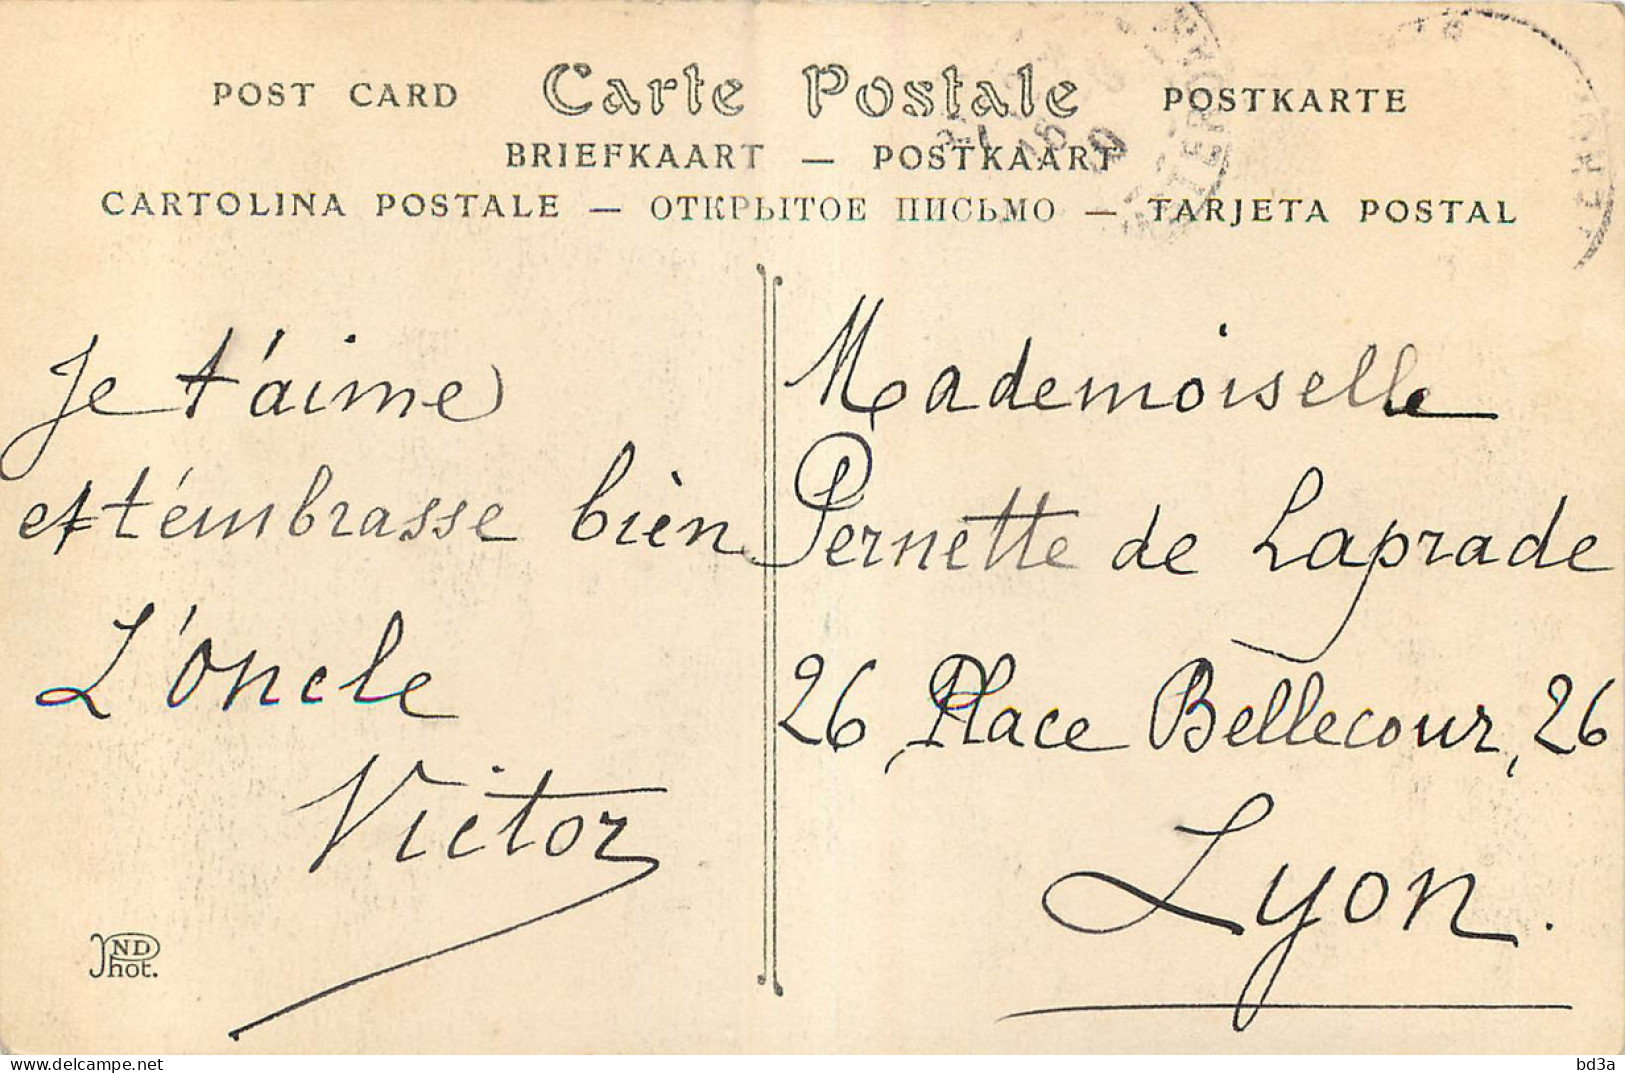 POST CARD Carte Postale POSTKARTE
BRIEFKAART — POSTKAART
CARTOLINA POSTALE — ОТКРЫТОЕ ПИСЬМО — TARJETA POSTAL
Je t'aime
et t'embrasse bien
L'oncle
Victor
ND
Phot.
Mademoiselle
Pernette de Laprade
26, Place Bellecour, 26
Lyon.
bd3a